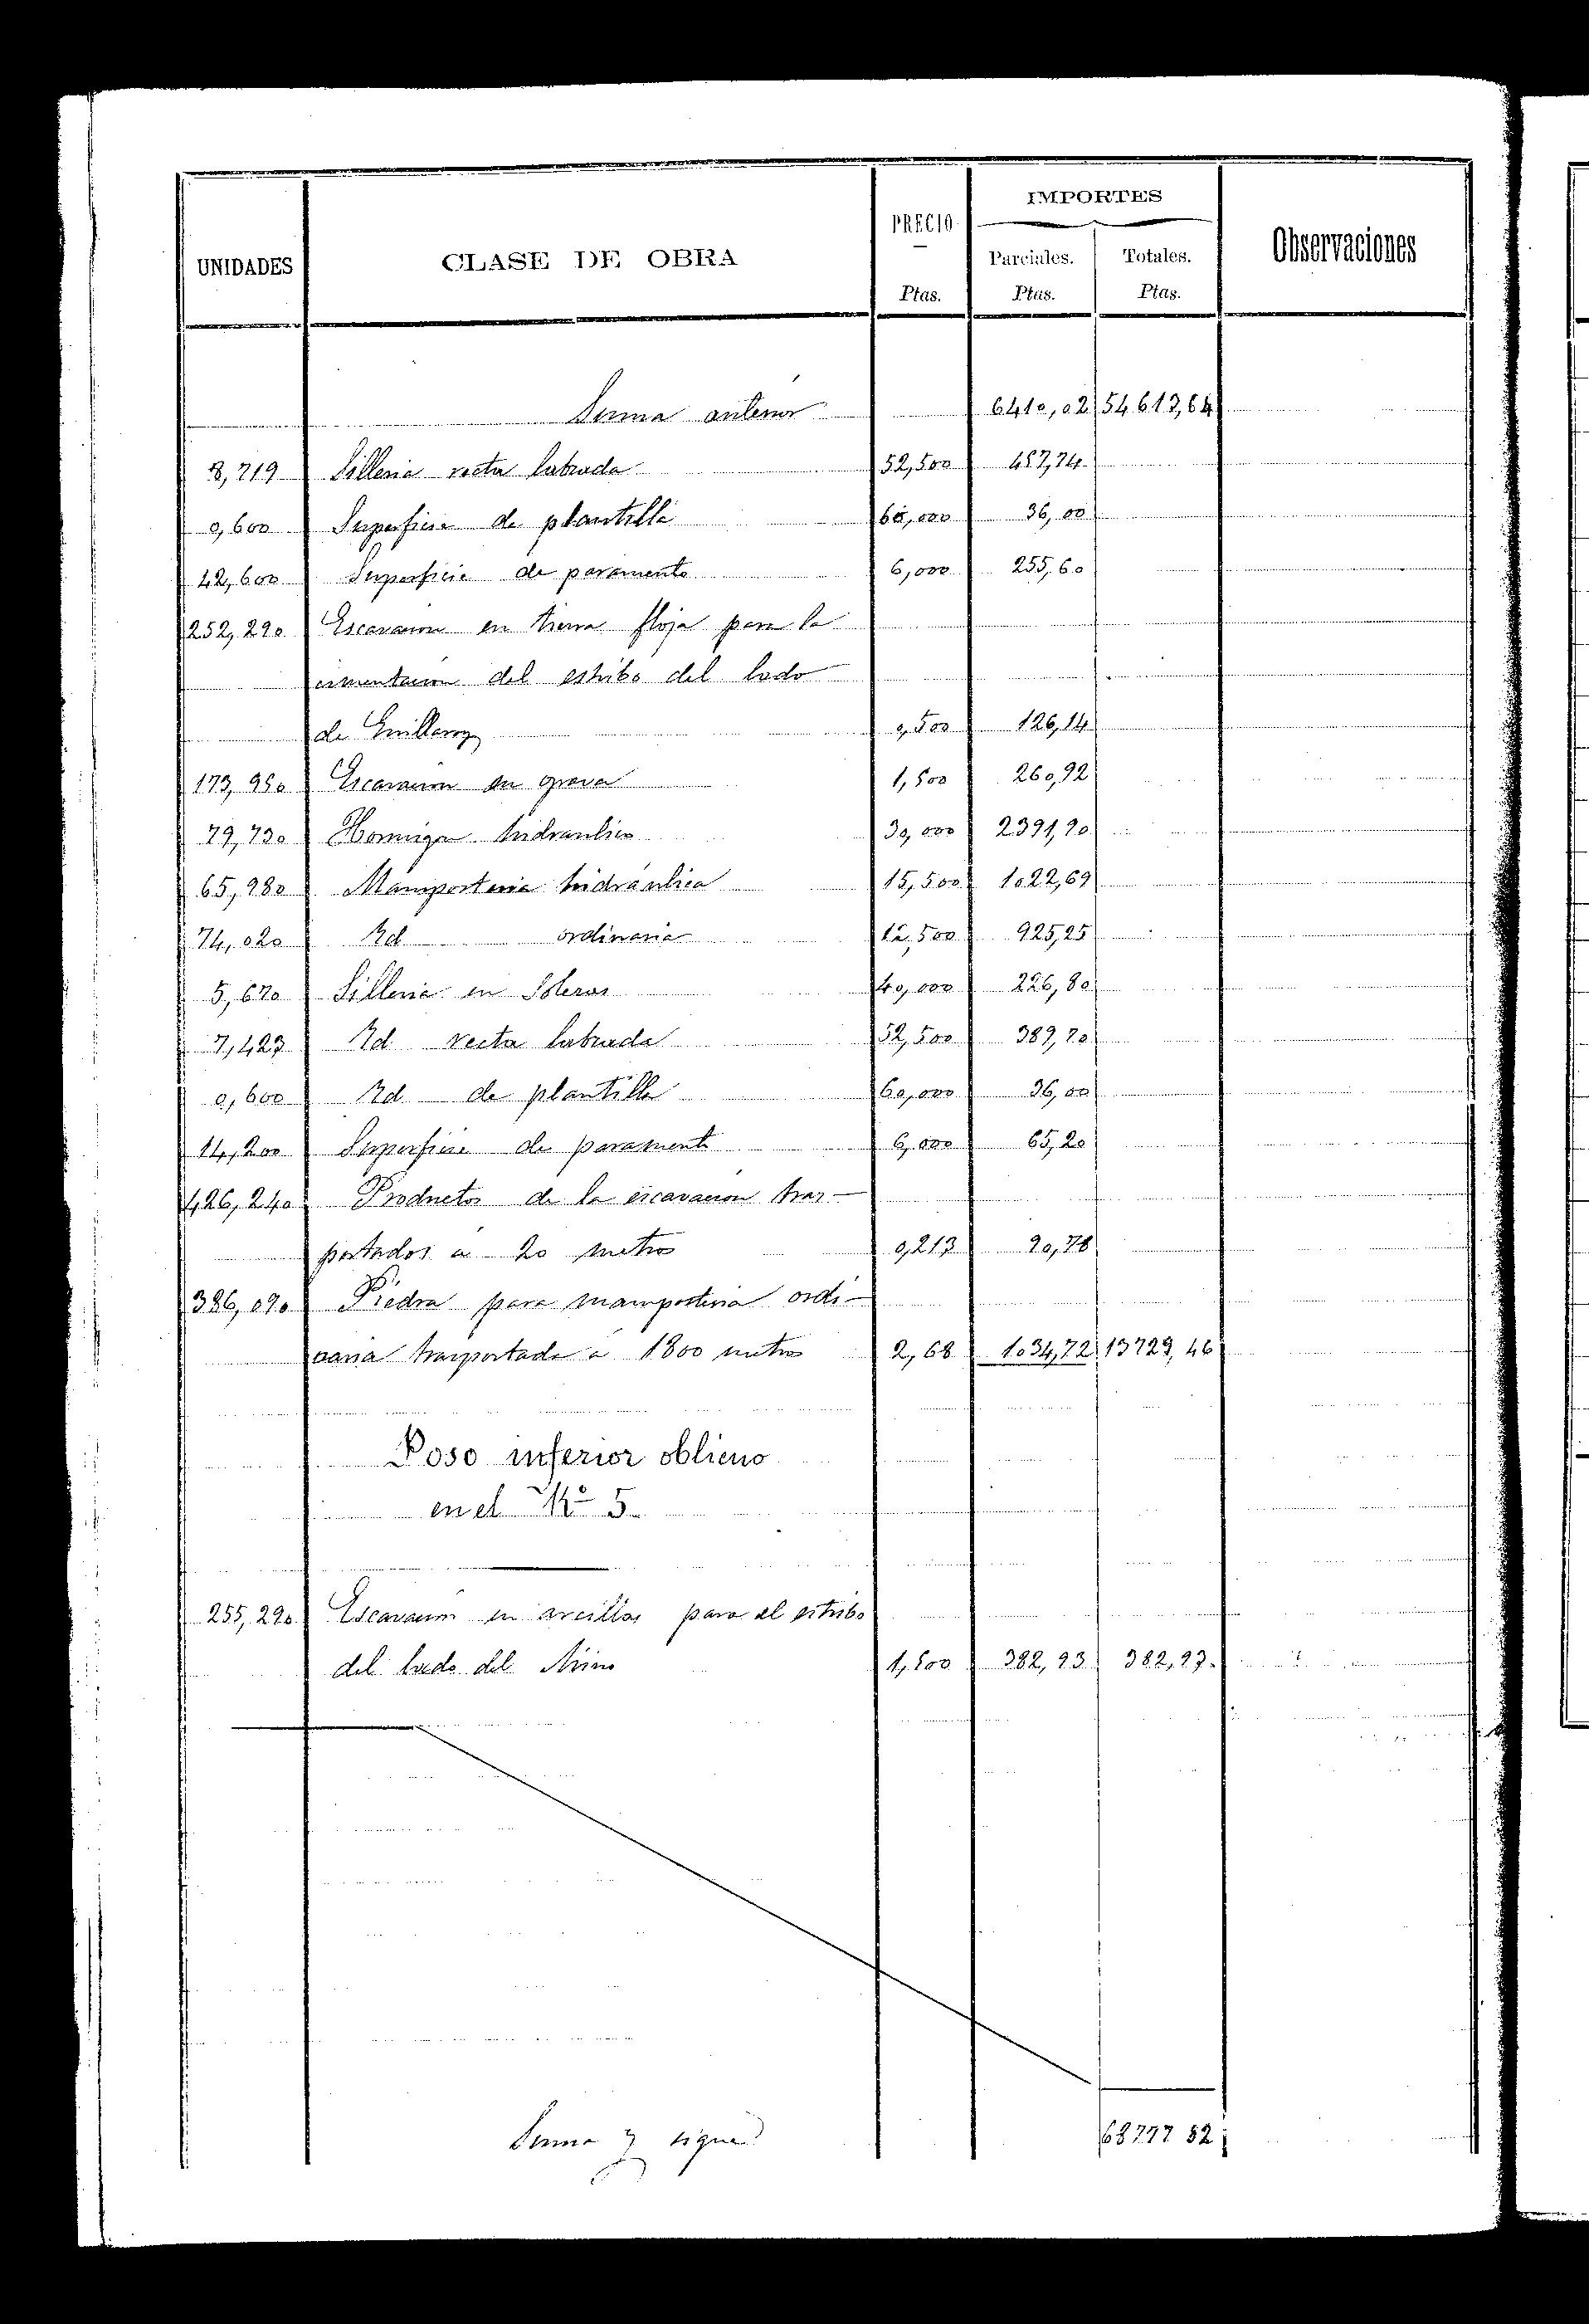 IMPORTES
UNIDADES CLASE DE OBRA PRECIO Parciales. Totales. Observaciones
Ptas. Ptas. Ptas.
Suma anterior 6410,02 54613,64
8,719 Silleria recta labrada 52,500 457,74
0,600 Superficie de plantilla 60,000 36,00
42,600 Superficie de paramento 6,000 255,60
252,290 Escavacion en tierra floja para la
cimentacion del estribo del lado
de Guillarey 0,500 126,14
173,950 Escavacion en grava 1,500 260,92
79,730 Hormigon hidraulico 30,000 2391,90
65,980 Mamposteria hidráulica 15,500 1022,69
74,020 Id ordinaria 12,500 925,25
5,670 Silleria en Soleras 40,000 226,80
7,423 Id recta labrada 52,500 389,70
0,600 Id de plantilla 60,000 36,00
14,200 Superficie de paramento 6,000 65,20
426,240 Productos de la escavacion tras-
portados á 20 metros 0,213 90,78
386,090 Piedra para mamposteria ordi-
naria trasportada á 1800 metros 2,68 1034,72 13729,46
Poso inferior oblicuo
en el Kº 5
255,290 Escavacion en arcillas para el estribo
del lado del Miño 1,500 382,93 382,93
Suma y sigue 68727 52